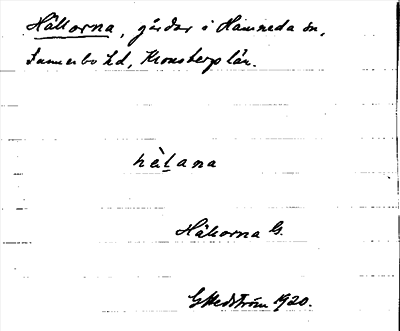 Hållorna, gårdar i Hamneda sn,
Sunnerbo hd, Kronobergs län.
hàlana
Hållorna G.
G Hedström 1920.